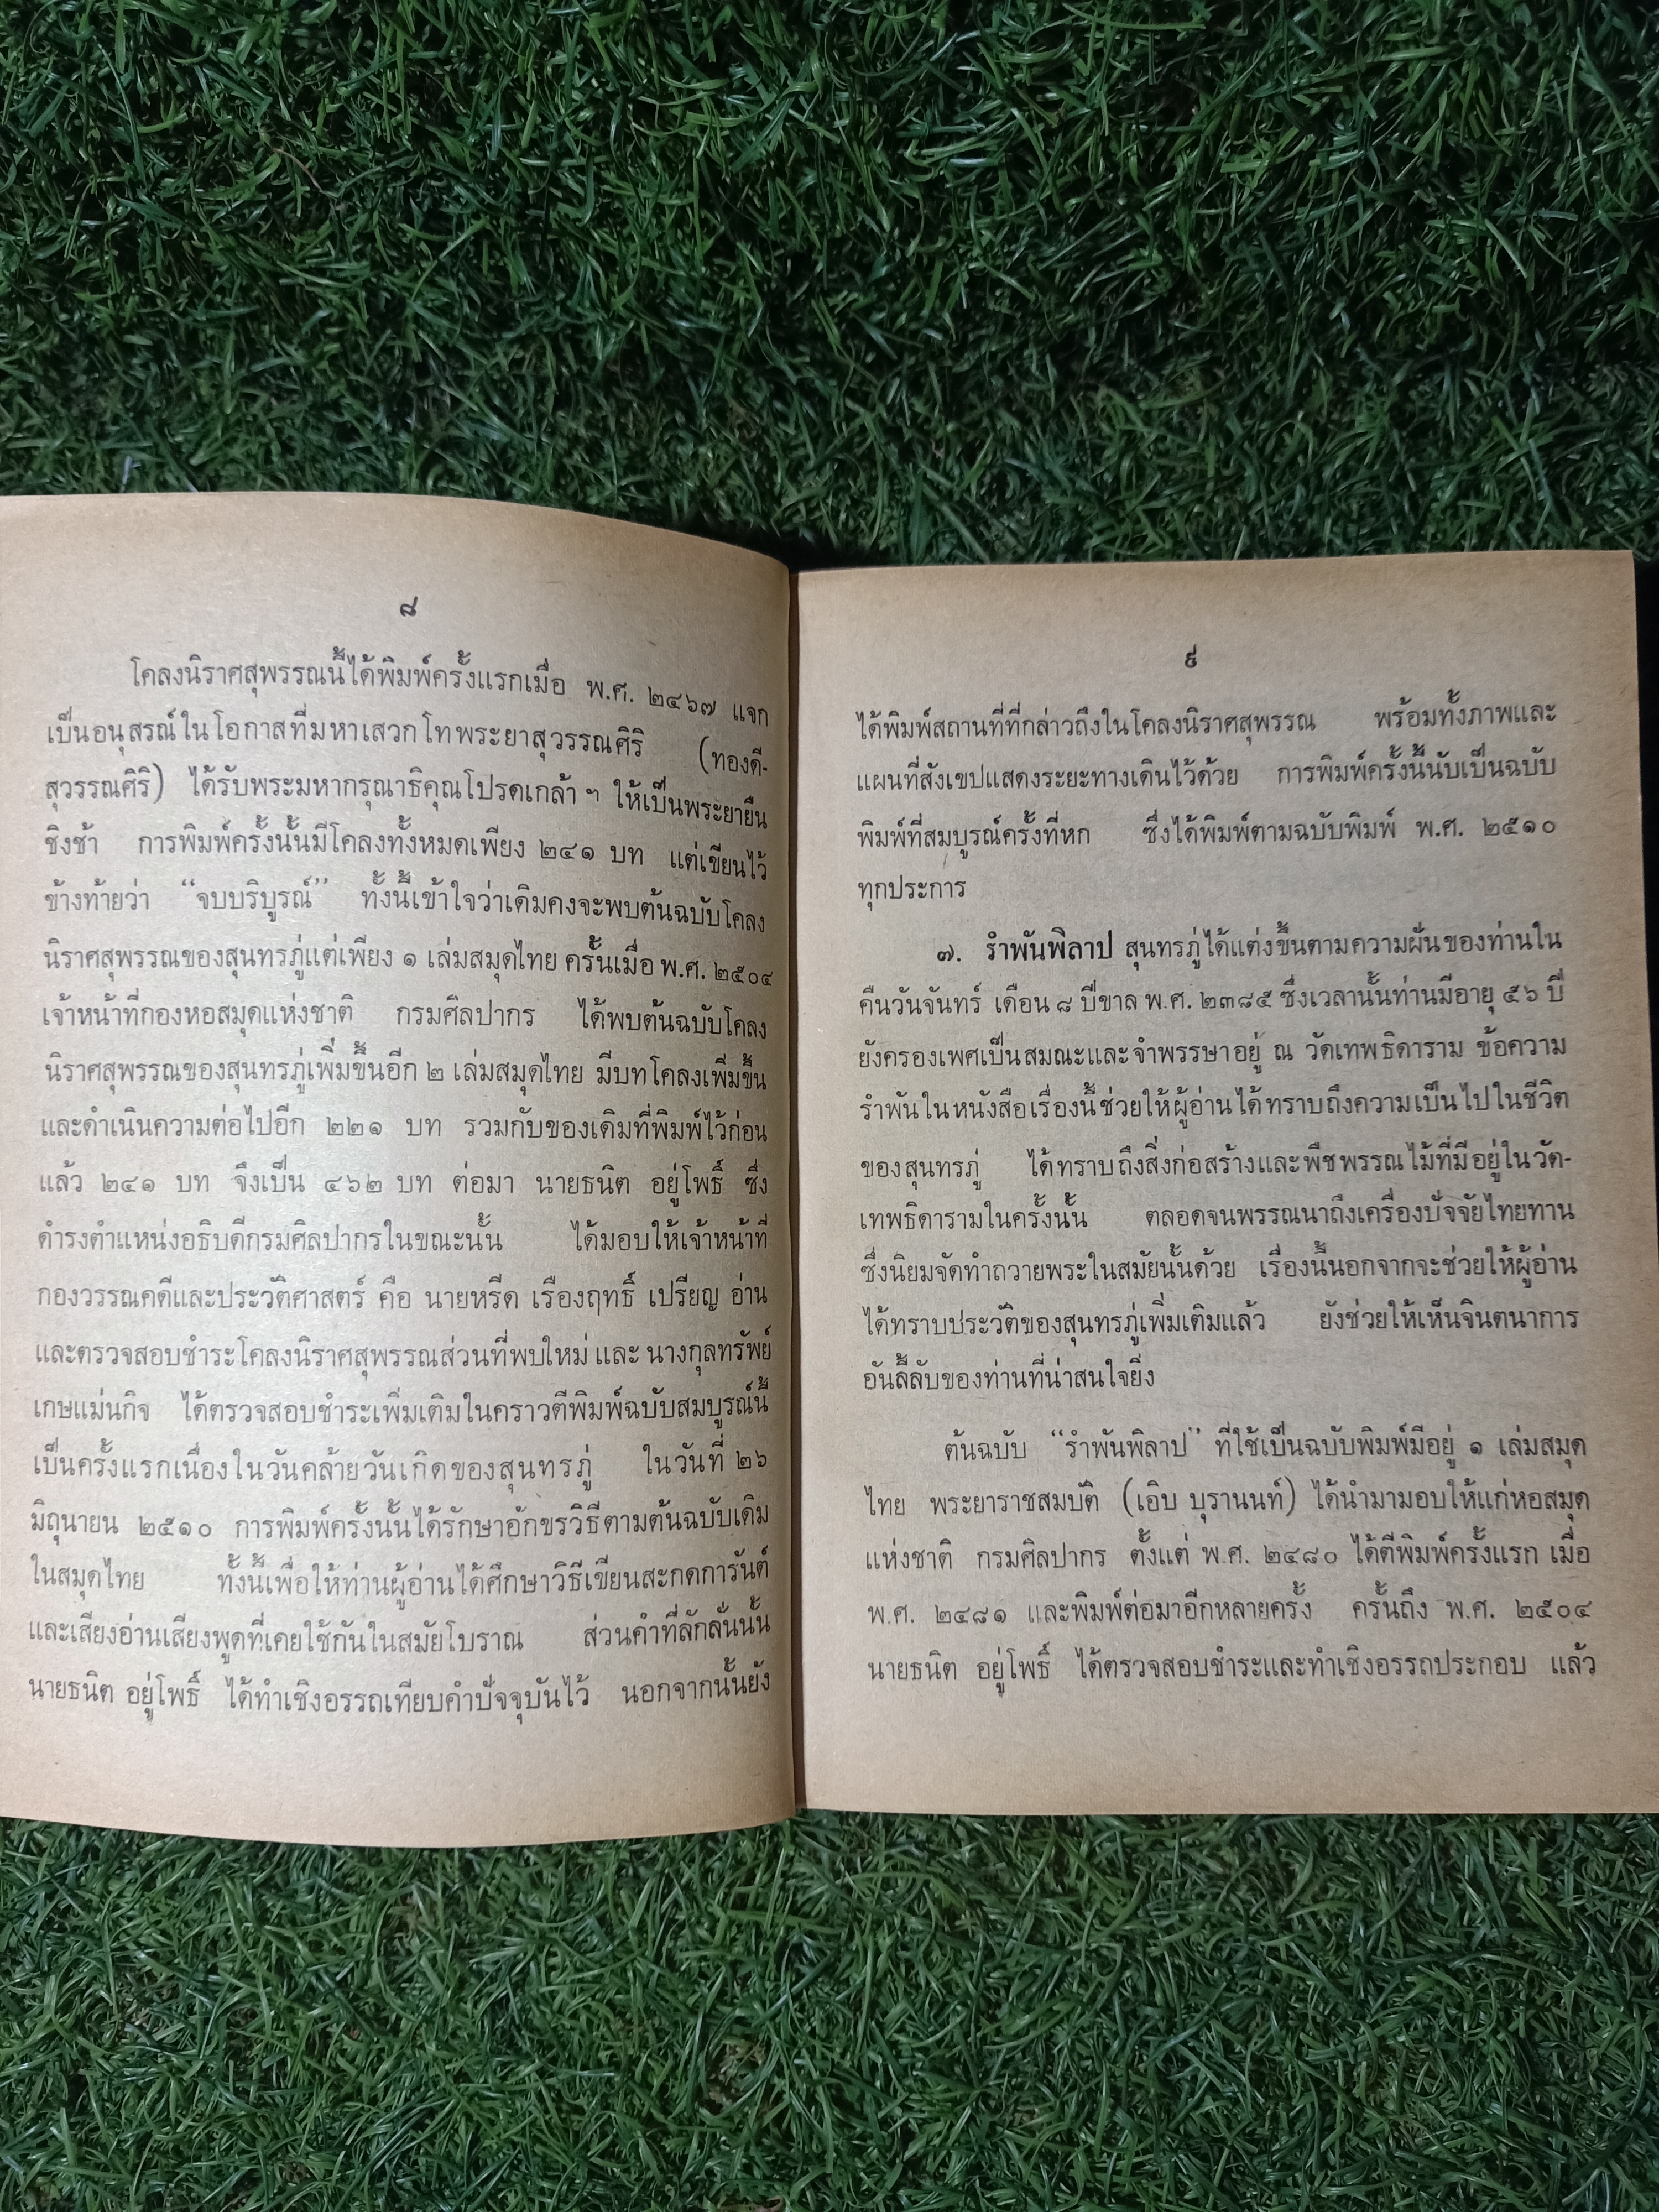 ๘
โคลงนิราศสุพรรณนี้ได้พิมพ์ครั้งแรกเมื่อ พ.ศ. ๒๔๖๗ แจก
เป็นอนุสรณ์ในโอกาสที่มหาเสวกโทพระยาสุวรรณศิริ (ทองดี-
สุวรรณศิริ) ได้รับพระมหากรุณาธิคุณโปรดเกล้า ฯ ให้เป็นพระยายืน
ชิงช้า การพิมพ์ครั้งนั้นมีโคลงทั้งหมดเพียง ๒๔๑ บท แต่เขียนไว้
ข้างท้ายว่า “จบบริบูรณ์” ทั้งนี้เข้าใจว่าเดิมคงจะพบต้นฉบับโคลง
นิราศสุพรรณของสุนทรภู่แต่เพียง ๑ เล่มสมุดไทย ครั้นเมื่อ พ.ศ. ๒๕๐๔
เจ้าหน้าที่กองหอสมุดแห่งชาติ กรมศิลปากร ได้พบต้นฉบับโคลง
นิราศสุพรรณของสุนทรภู่เพิ่มขึ้นอีก ๒ เล่มสมุดไทย มีบทโคลงเพิ่มขึ้น
และดำเนินความต่อไปอีก ๒๒๑ บท รวมกับของเดิมที่พิมพ์ไว้ก่อน
แล้ว ๒๔๑ บท จึงเป็น ๔๖๒ บท ต่อมา นายธนิต อยู่โพธิ์ ซึ่ง
ดำรงตำแหน่งอธิบดีกรมศิลปากรในขณะนั้น ได้มอบให้เจ้าหน้าที่
กองวรรณคดีและประวัติศาสตร์ คือ นายหรีด เรืองฤทธิ์ เปรียญ อ่าน
และตรวจสอบชำระโคลงนิราศสุพรรณส่วนที่พบใหม่ และ นางกุลทรัพย์
เกษแม่นกิจ ได้ตรวจสอบชำระเพิ่มเติมในคราวตีพิมพ์ฉบับสมบูรณ์นี้
เป็นครั้งแรกเนื่องในวันคล้ายวันเกิดของสุนทรภู่ ในวันที่ ๒๖
มิถุนายน ๒๕๑๐ การพิมพ์ครั้งนั้นได้รักษาอักขรวิธีตามต้นฉบับเดิม
ในสมุดไทย ทั้งนี้เพื่อให้ท่านผู้อ่านได้ศึกษาวิธีเขียนสะกดการันต์
และเสียงอ่านเสียงพูดที่เคยใช้กันในสมัยโบราณ ส่วนคำที่ลักลั่นนั้น
นายธนิต อยู่โพธิ์ ได้ทำเชิงอรรถเทียบคำปัจจุบันไว้ นอกจากนั้นยัง
๙
ได้พิมพ์สถานที่ที่กล่าวถึงในโคลงนิราศสุพรรณ พร้อมทั้งภาพและ
แผนที่สังเขปแสดงระยะทางเดินไว้ด้วย การพิมพ์ครั้งนี้นับเป็นฉบับ
พิมพ์ที่สมบูรณ์ครั้งที่หก ซึ่งได้พิมพ์ตามฉบับพิมพ์ พ.ศ. ๒๕๑๐
ทุกประการ
๗. รำพันพิลาป สุนทรภู่ได้แต่งขึ้นตามความฝันของท่านใน
คืนวันจันทร์ เดือน ๘ ปีขาล พ.ศ. ๒๓๘๕ ซึ่งเวลานั้นท่านมีอายุ ๕๖ ปี
ยังครองเพศเป็นสมณะและจำพรรษาอยู่ ณ วัดเทพธิดาราม ข้อความ
รำพันในหนังสือเรื่องนี้ช่วยให้ผู้อ่านได้ทราบถึงความเป็นไปในชีวิต
ของสุนทรภู่ ได้ทราบถึงสิ่งก่อสร้างและพืชพรรณไม้ที่มีอยู่ในวัด-
เทพธิดารามในครั้งนั้น ตลอดจนพรรณนาถึงเครื่องปัจจัยไทยทาน
ซึ่งนิยมจัดทำถวายพระในสมัยนั้นด้วย เรื่องนี้นอกจากจะช่วยให้ผู้อ่าน
ได้ทราบประวัติของสุนทรภู่เพิ่มเติมแล้ว ยังช่วยให้เห็นจินตนาการ
อันลี้ลับของท่านที่น่าสนใจยิ่ง
ต้นฉบับ “รำพันพิลาป” ที่ใช้เป็นฉบับพิมพ์มีอยู่ ๑ เล่มสมุด
ไทย พระยาราชสมบัติ (เอิบ บุรานนท์) ได้นำมามอบให้แก่หอสมุด
แห่งชาติ กรมศิลปากร ตั้งแต่ พ.ศ. ๒๔๘๐ ได้ตีพิมพ์ครั้งแรก เมื่อ
พ.ศ. ๒๔๘๑ และพิมพ์ต่อมาอีกหลายครั้ง ครั้นถึง พ.ศ. ๒๕๐๔
นายธนิต อยู่โพธิ์ ได้ตรวจสอบชำระและทำเชิงอรรถประกอบ แล้ว